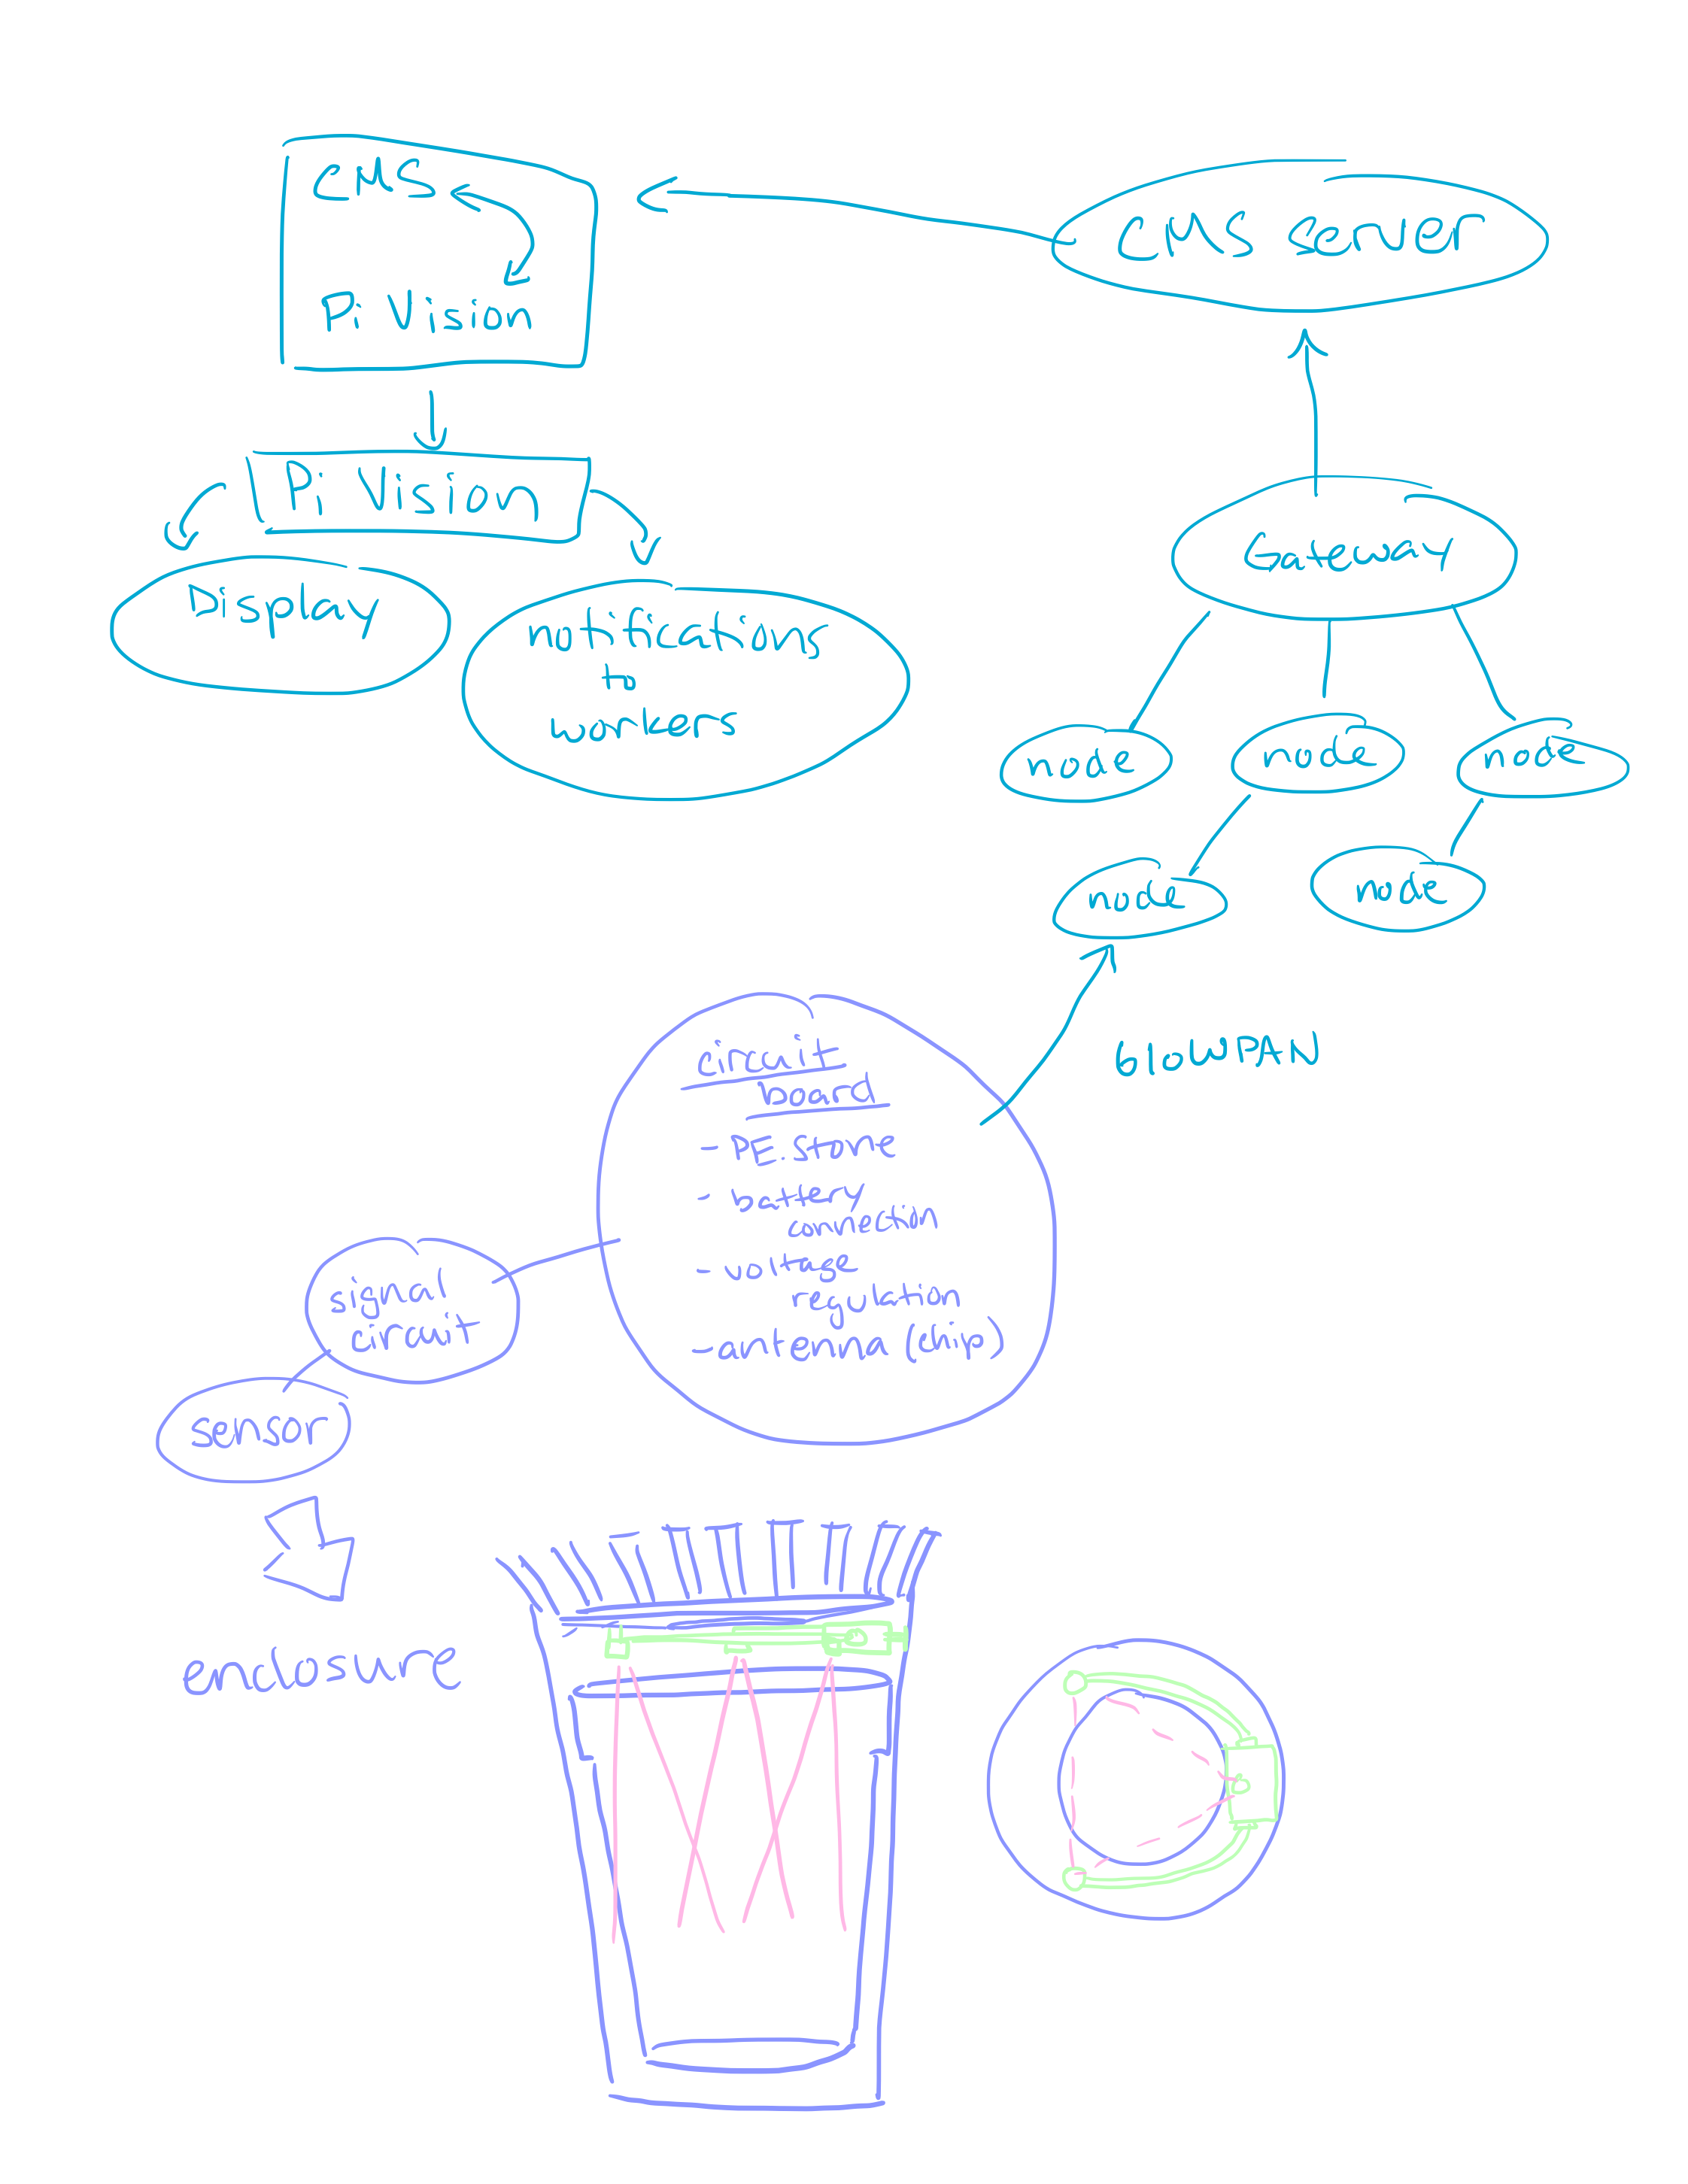 CMS
Pi Vision
CMS Server
Pi Vision
Display
notifications
to
workers
Gateway
node
node
node
node
node
6loWPAN
circuit
board
- PE.Stone
- battery
connection
- voltage
regulation
- antenna (chip)
signal
circuit
sensor
enclosure